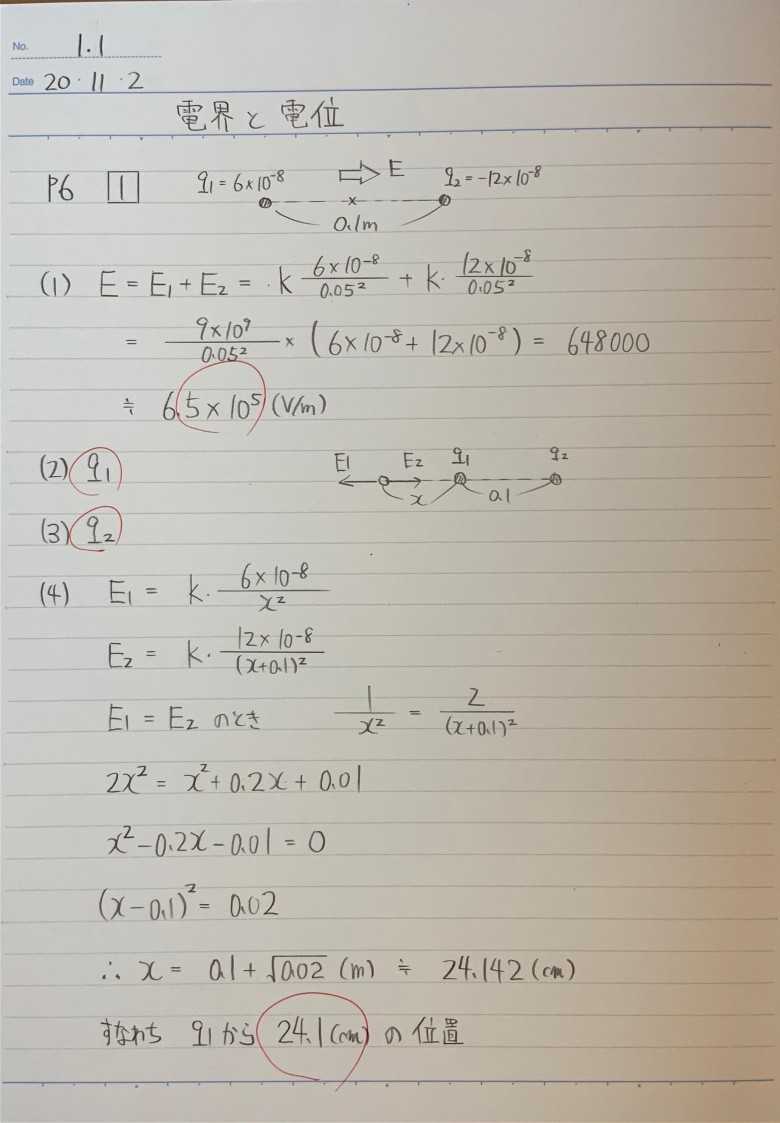 No. 1.1
Date 20・11・2
電界と電位
P6 1 q₁=6×10⁻⁸ ⇨E q₂=-12×10⁻⁸
×
0.1m
(1) E = E₁ + E₂ = ・k 6×10⁻⁸/0.05² + k・12×10⁻⁸/0.05²
= 9×10⁹/0.05² × (6×10⁻⁸ + 12×10⁻⁸) = 648000
≒ 6.5×10⁵ (V/m)
(2) q₁
E₁ E₂ q₁ q₂
x 0.1
(3) q₂
(4) E₁ = k・6×10⁻⁸/x²
E₂ = k・12×10⁻⁸/(x+0.1)²
E₁ = E₂ のとき 1/x² = 2/(x+0.1)²
2x² = x² + 0.2x + 0.01
x² - 0.2x - 0.01 = 0
(x - 0.1)² = 0.02
∴ x = 0.1 + √0.02 (m) ≒ 24.142 (cm)
すなわち q₁から 24.1 (cm) の位置